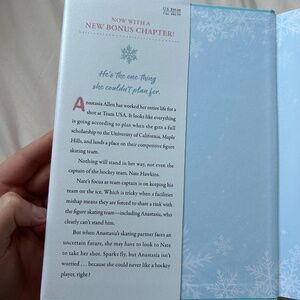 NOW WITH A
NEW BONUS CHAPTER!
He's the one thing
she couldn't plan for.
Anastasia Allen has worked her entire life for a
shot at Team USA. It looks like everything
is going according to plan when she gets a full
scholarship to the University of California, Maple
Hills, and lands a place on their competitive figure
skating team.
Nothing will stand in her way, not even the
captain of the hockey team, Nate Hawkins.
Nate's focus as team captain is on keeping his
team on the ice. Which is tricky when a facilities
mishap means they are forced to share a rink with
the figure skating team—including Anastasia, who
clearly can't stand him.
But when Anastasia's skating partner faces an
uncertain future, she may have to look to Nate
to take her shot. Sparks fly, but Anastasia isn't
worried . . . because she could never like a hockey
player, right?